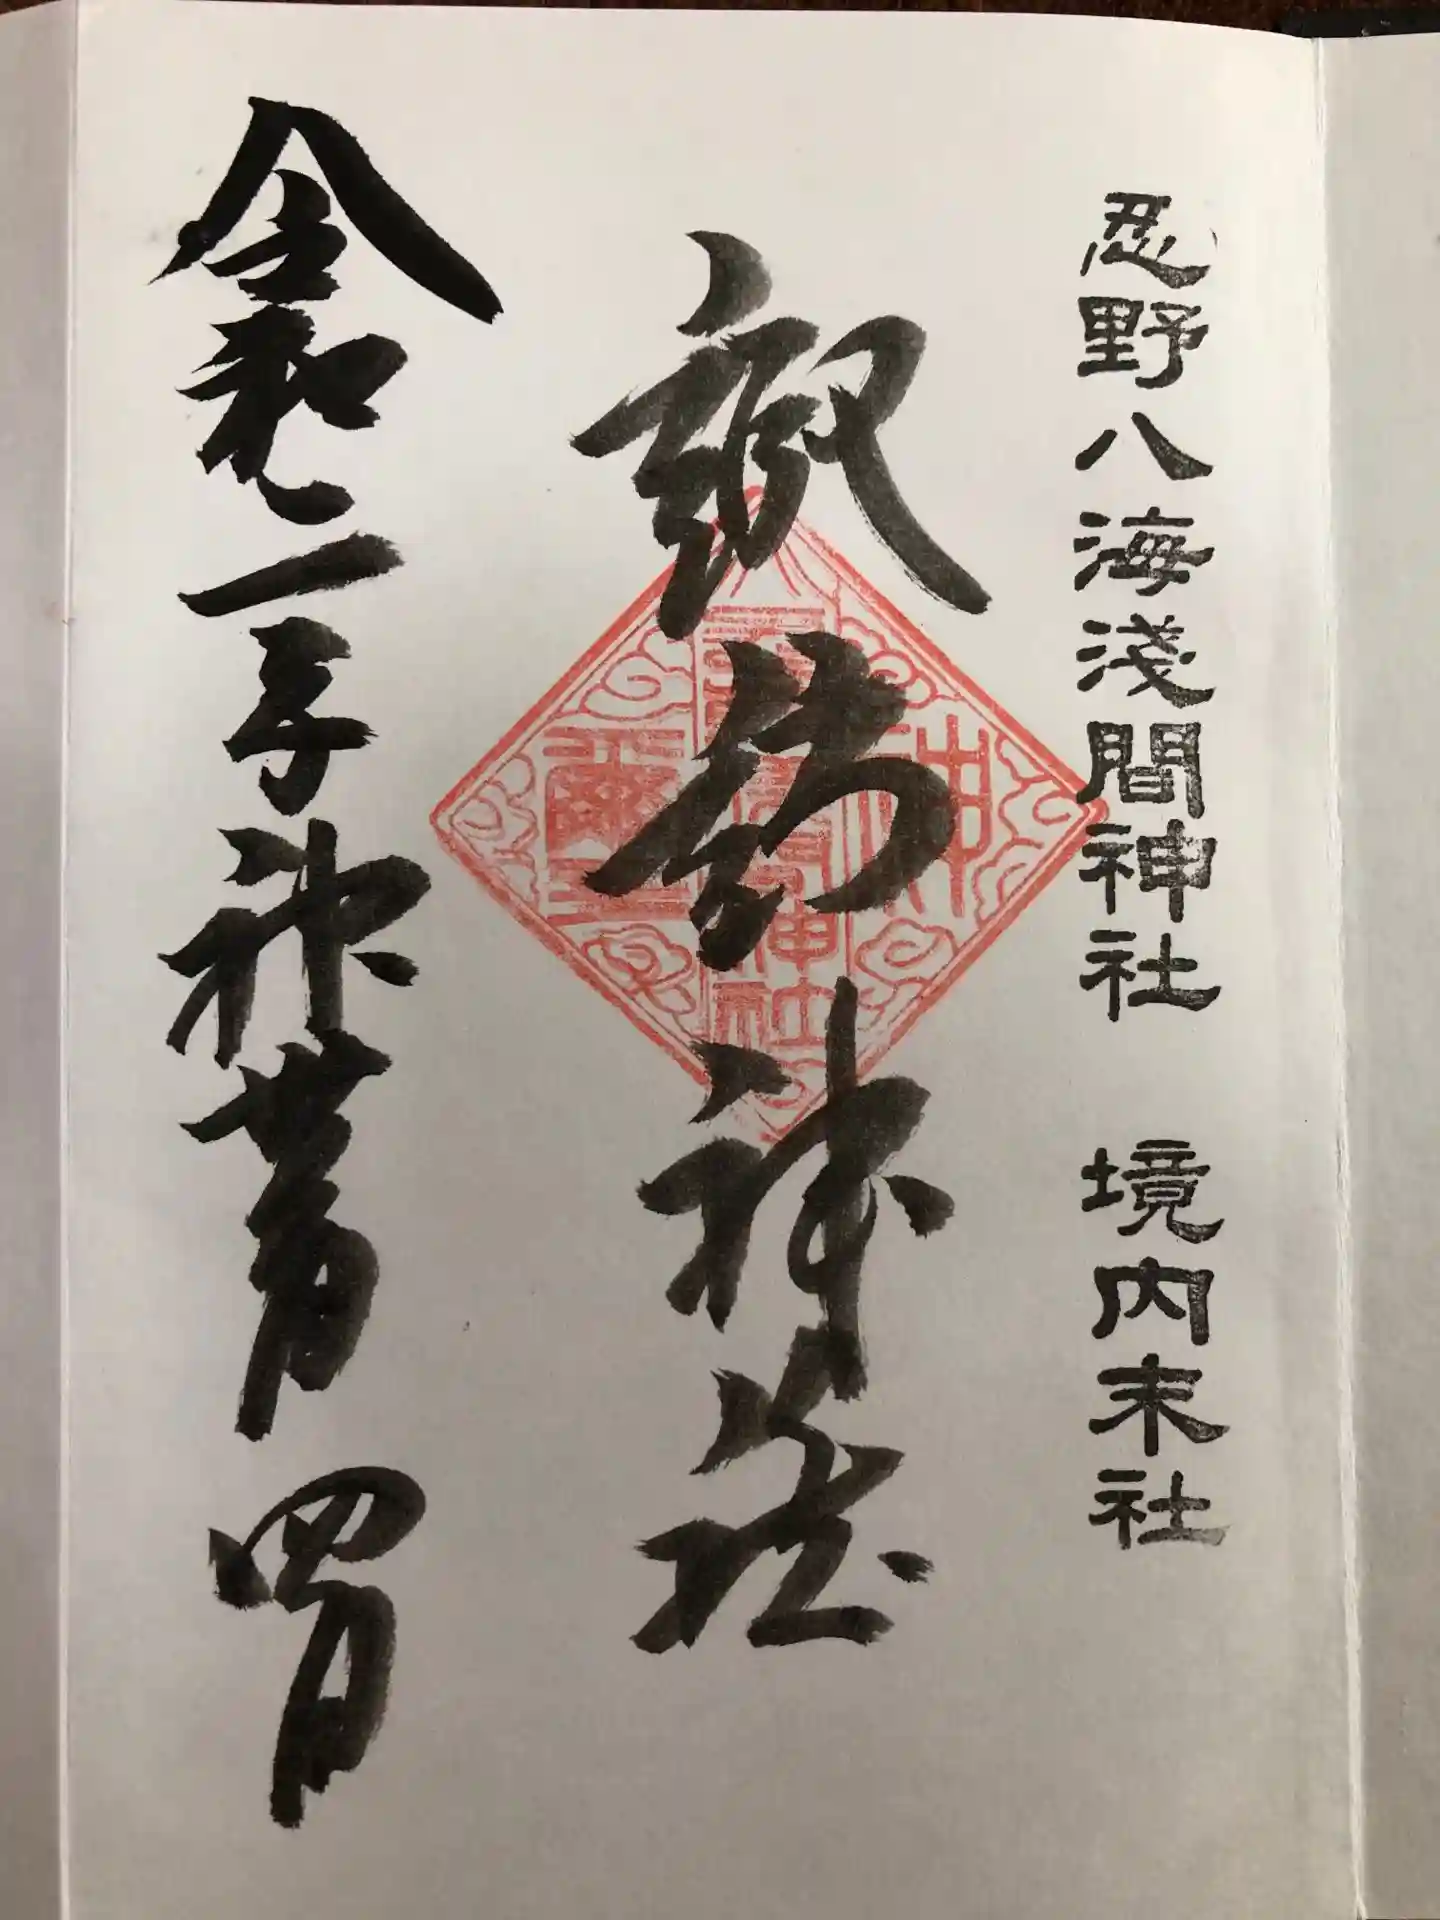 忍野八海淺間神社 境内末社
諏訪神社
令和二年神無月 四日